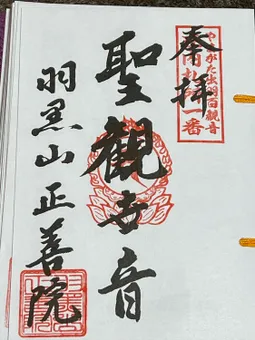 奉拝
やまがた出羽百観音
一番
聖観世音
羽黒山 正善院